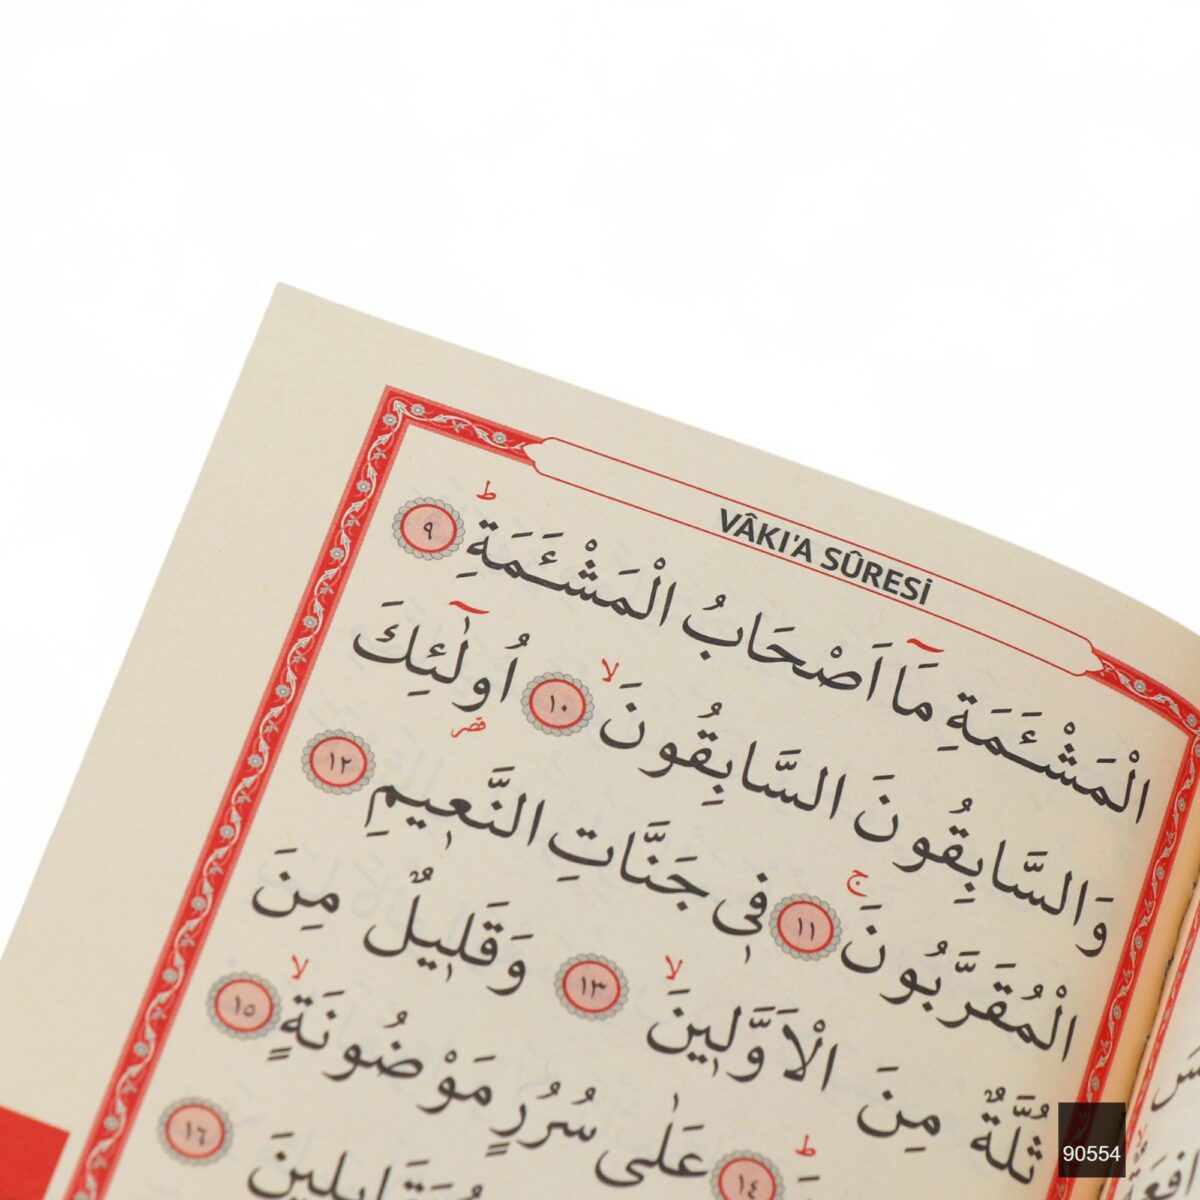 VÂKI'A SÛRESİ
الْمَشْـَٔمَةِ مَٓا اَصْحَابُ الْمَشْـَٔمَةِ ط ٩
وَالسَّابِقُونَ السَّابِقُونَ لا ١٠ اُولٰٓئِكَ قصر
الْمُقَرَّبُونَ ج ١١ فٖى جَنَّاتِ النَّعٖيمِ ١٢
ثُلَّةٌ مِنَ الْاَوَّلٖينَ لا ١٣ وَقَلٖيلٌ مِنَ
ط ١٤ عَلٰى سُرُرٍ مَوْضُونَةٍ لا ١٥
١٦
90554